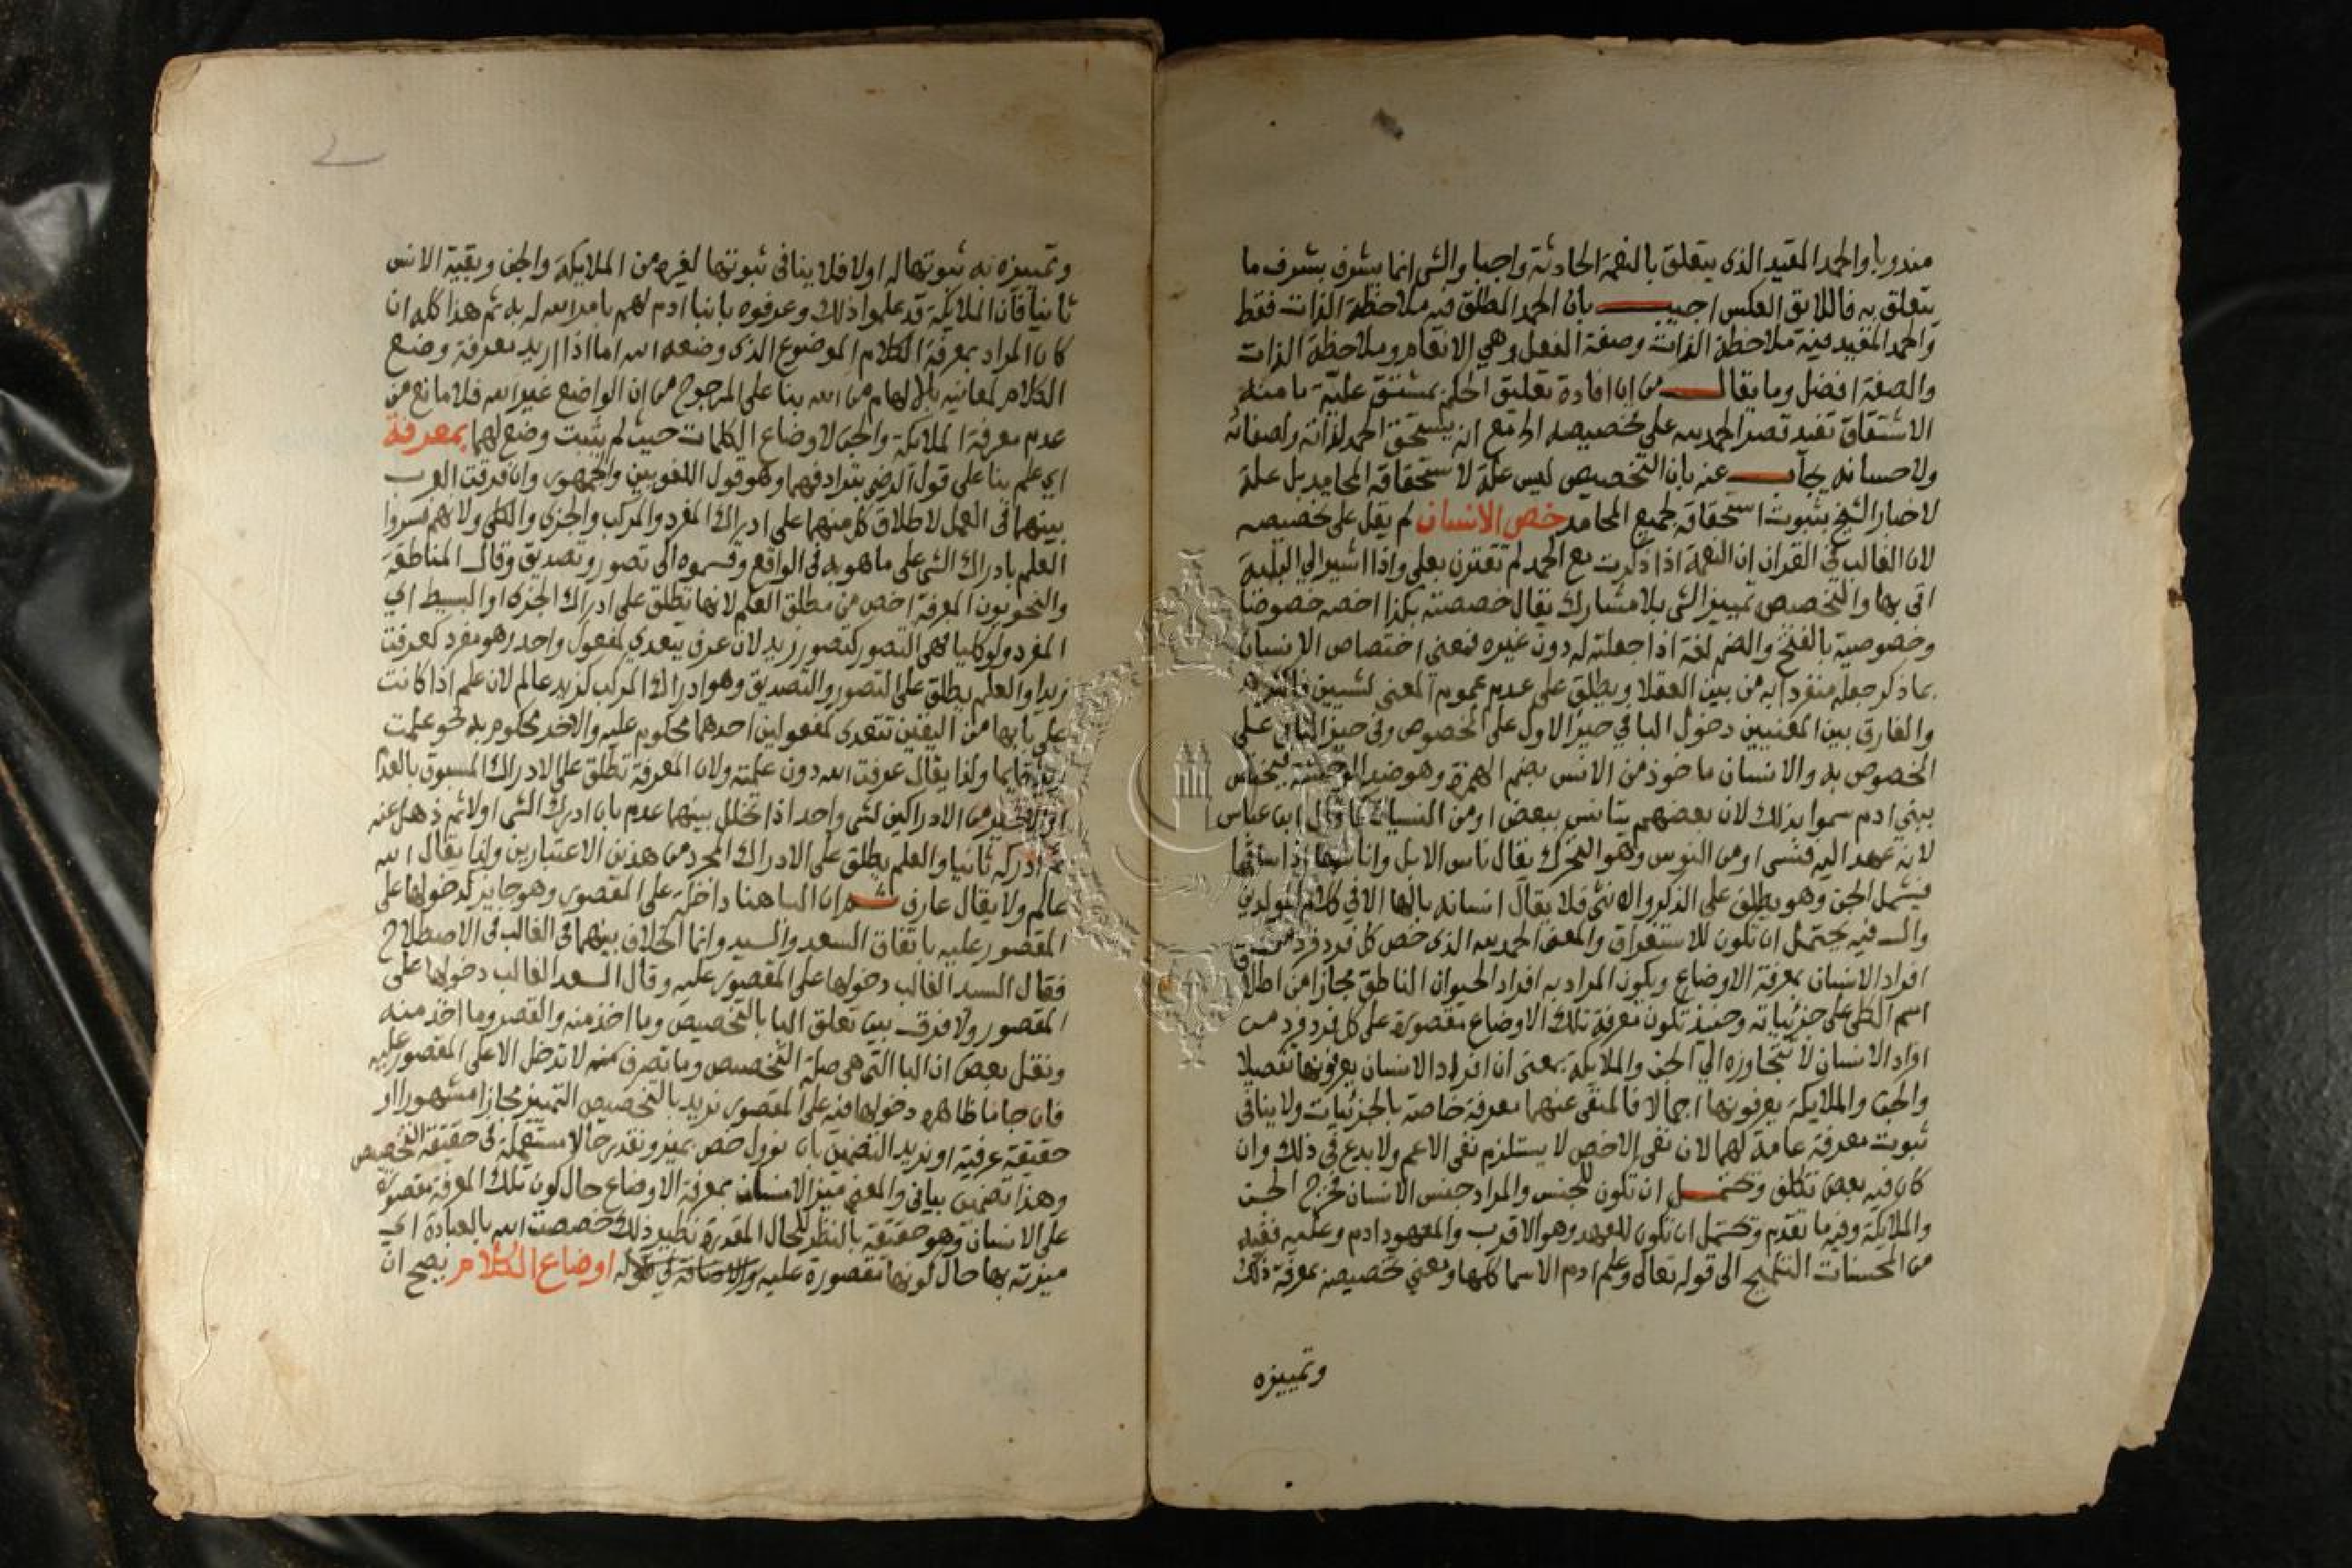 مندوبا والحمد المقيد الذى يتعلق بالنعمة الحادثة واجبا والشى انما يشرف بشرف ما
يتعلق به فاللايق العكس اجيب بان الحمد المطلق فيه ملاحظة الذات فقط
والحمد المقيد فيه ملاحظة الذات وصفة الفعل وهي الانعام وملاحظة الذات
والصفة افضل وما يقال من ان افادة تعليق الحكم بمشتق علية ما منه
الاشتقاق تفيد قصر الحمد لله على تخصيصه الخ مع انه يستحق الحمد لذاته ولصفاته
ولاحسانه يجاب عنه بان التخصيص ليس علة لاستحقاقه المحامد بل علة
لاخبار الشيخ بثبوت استحقاقه لجميع المحامد خص الانسان لم يقل على تخصيصه
لان الغالب في القران ان النعمة اذا ذكرت مع الحمد لم تقترن بعلى واذا اشير الي البلية
اتى بها والتخصيص تمييز الشى بلا مشارك يقال خصصته بكذا اخصه خصوصا
وخصوصية بالفتح والضم لغة اذا جعلته له دون غيره فمعنى اختصاص الانسان
بما ذكر جعله منفردا به من بين العقلا ويطلق على عدم عموم المعنى لشيين فاكثر
والفارق بين المعنيين دخول البا في حيز الاول على المخصوص وفى حيز الثانى على
المخصوص به والانسان ماخوذ من الانس بضم الهمزة وهو ضد الوحشة
ببنى ادم سموا بذلك لان بعضهم يتانس ببعض او من النسيان كما قال ابن عباس
لانه عهد اليه فنسى او من النوس وهو التحرك يقال ناس الابل واناسها اذا ساقها
فيشمل الجن وهو يطلق على الذكر والانثى فلا يقال انسانة بالها الا في كلام المولدين
وال فيه يحتمل ان تكون للاستغراق والمعنى الحمد لله الذى خص كل فرد فرد من
افراد الانسان بمعرفة الاوضاع ويكون المراد به افراد الحيوان الناطق مجازا من اطلاق
اسم الكلى على جزئياته وحينئذ تكون معرفة تلك الاوضاع مقصورة على كل فرد فرد من
افراد الانسان لا تتجاوزه الي الجن والملايكة بمعنى ان افراد الانسان يعرفونها تفصيلا
والجن والملايكة يعرفونها اجمالا فالمنفى عنهما معرفة خاصة بالجزئيات ولا ينافى
ثبوت معرفة عامة لهما لان نفى الاخص لا يستلزم نفى الاعم ولا بدع في ذلك وان
كان فيه بعض تكلف وتحتمل ان تكون للجنس والمراد جنس الانسان فخرج الجن
والملايكة وفيه ما تقدم وتحتمل ان تكون للعهد وهو الاقرب والمعهود ادم وعليه ففيه
من المحسنات التلميح الى قوله تعالى وعلم ادم الاسما كلها ومعنى تخصيصه بمعرفة ذلك
وتمييزه
وتمييزه به ثبوتها له اولا فلا ينافى ثبوتها لغيره من الملايكة والجن وبقية الانس
ثانيا فان الملايكة قد علموا ذلك وعرفوه بانبا ادم لهم بامر الله له به ثم هذا كله ان
كان المراد بمعرفة الكلام الموضوع الذى وضعه الله اما اذا اريد معرفة وضع
الكلام لمعانيه بالالهام من الله بنا على المرجوح من ان الواضع غير الله فلا مانع من
عدم معرفة الملايكة والجن لاوضاع الكلمات حيث لم يثبت وضع لهما بمعرفة
اي علم بنا على قول الرضى بترادفهما وهو قول اللغويين والجمهور وان فرقت العرب
بينهما فى العمل لاطلاق كل منهما على ادراك المفرد والمركب والجزى والكلى ولانهم فسروا
العلم بادراك الشى على ما هو به فى الواقع وقسموه الى تصور وتصديق وقال المناطقة
والنحويون المعرفة اخص من مطلق العلم لانها تطلق على ادراك الجزى او البسيط اي
المفرد ولو كليا فهى التصور كتصور زيد لان عرف يتعدي لمفعول واحد وهو مفرد كعرفت
زيدا والعلم يطلق على التصور والتصديق وهو ادراك المركب كزيد عالم لان علم اذا كانت
على بابها من اليقين تتعدى لمفعولين احدهما محكوم عليه والاخر محكوم به نحو علمت
زيدا قايما ولذا يقال عرفت الله دون علمته ولان المعرفة تطلق على الادراك المسبوق بالعدم
او الاخير من الادراكين لشى واحد اذا تخلل بينهما عدم بان ادرك الشى اولا ثم ذهل عنه
ثم ادركه ثانيا والعلم يطلق على الادراك المجرد من هذين الاعتبارين ولذا يقال الله
عالم ولا يقال عارف ثم ان البا هنا داخلة على المقصور وهو جايز كدخولها على
المقصور عليه باتفاق السعد والسيد وانما الخلاف بينهما فى الغالب فى الاصطلاح
فقال السيد الغالب دخولها على المقصور عليه وقال السعد الغالب دخولها على
المقصور ولا فرق بين تعلق البا بالتخصيص وما اخذ منه والقصر وما اخذ منه
ونقل بعض ان البا التى هى صلة التخصيص وما تصرف منه لا تدخل الا على المقصور عليه
فان جا ما ظاهره دخولها فيه على المقصور نريد بالتخصيص التمييز مجازا مشهورا او
حقيقة عرفية او نريد التضمين بان نوول خص بميز ونقدر حالا مستعملة فى حقيقة التخصيص
وهذا تضمين بيانى والمعنى ميز الانسان بمعرفة الاوضاع حال كون تلك المعرفة مقصورة
على الانسان وهو حقيقة بالنظر للحال المقدرة نظير ذلك خصصت الله بالعبادة اي
ميزته بها حال كونها مقصورة عليه والاضافة في قوله اوضاع الكلام يصح ان